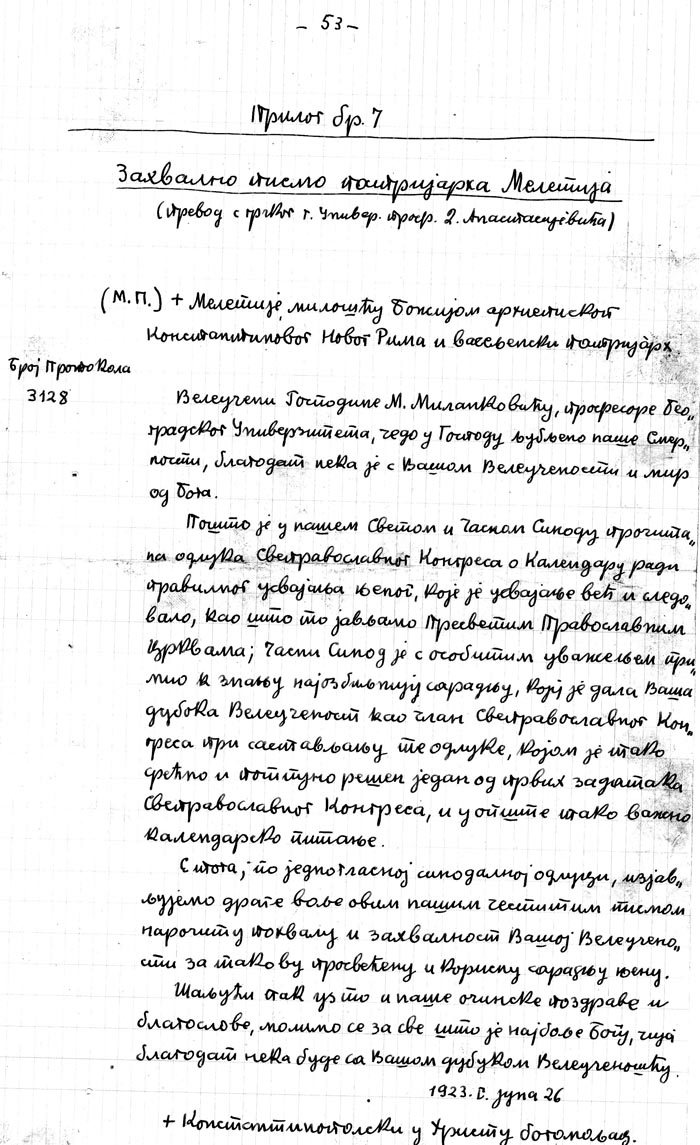 — 53 —
Прилог бр. 7
Захвално писмо патријарха Мелетија
(превод с грчког г. Универ. проф. Д. Анастасијевића)
(М.П.) + Мелетије, милошћу Божијом архиепископ
Константиновог Новог Рима и васељенски патријарх.
Број Протокола
3128
Велеучени Господине М. Миланковићу, професоре Бео„
градског Универзитета, чедо у Господу љубљено наше Смер„
ности, благодат нека је с Вашом Велеучености и мир
од Бога.
Пошто је у нашем Светом и Часном Синоду прочита„
на одлука Свеправославног Конгреса о Календару ради
правилног усвајања његог, које је усвајање већ и следо„
вало, као што то јављамо Пресветим Православним
Црквама; Часни Синод је с особитим уважењем при„
мио к знању најозбиљнију сарадњу, којј је дала Ваша
дубока Велеученост као члан Свеправославног Кон„
греса при састављању те одлуке, којом је тако
срећно и потпуно решен један од првих задатака
Свеправославног Конгреса, и у опште тако важно
календарско питање.
С тога, по једногласној синодалној одлуци, изјав„
љујемо драге воље овим нашим честитим писмом
нарочиту похвалу и захвалност Вашој Велеучено„
сти за такову просвећену и корисну сарадњу њену.
Шаљући пак уз то и наше очинске поздраве и
благослове, молимо се за све што је најбоље Богу, чија
благодат нека буде са Вашом дубуком Велеученошћу.
1923. г. јуна 26
+ Константинополски у Христу богомољац.